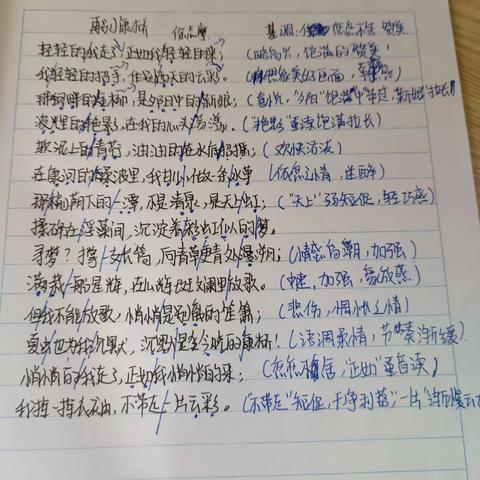 再别康桥 徐志摩 基调:依依不舍 赞美
轻轻的我走了,正如我轻轻的来;(饱满的赞美)
我轻轻的招手,作别西天的云彩。
那河畔的金柳,是夕阳中的新娘;(“夕阳”饱满“新娘”拉长)
波光里的艳影,在我的心头荡漾。(“艳影”重读饱满拉长)
软泥上的青荇,油油的在水底招摇;(欢快活泼)
在康河的柔波里,我甘心做一条水草(依恋之情,迷醉)
那榆荫下的一潭,不是清泉,是天上虹;(“天上”弱短促,轻巧感)
揉碎在浮藻间,沉淀着彩虹似的梦。
寻梦?撑一支长篙,向青草更青处漫溯;(情感高潮,加强)
满载一船星辉,在星辉斑斓里放歌。(快,加强,
但我不能放歌,悄悄是别离的笙箫;(悲伤,惆怅之情)
夏虫也为我沉默,沉默是今晚的康桥!(语调柔情,节奏渐缓)
悄悄的我走了,正如我悄悄的来;(依依不舍,“正如”重音读)
我挥一挥衣袖,不带走一片云彩。(“不带走”短促,干净利落;“一片”渐慢